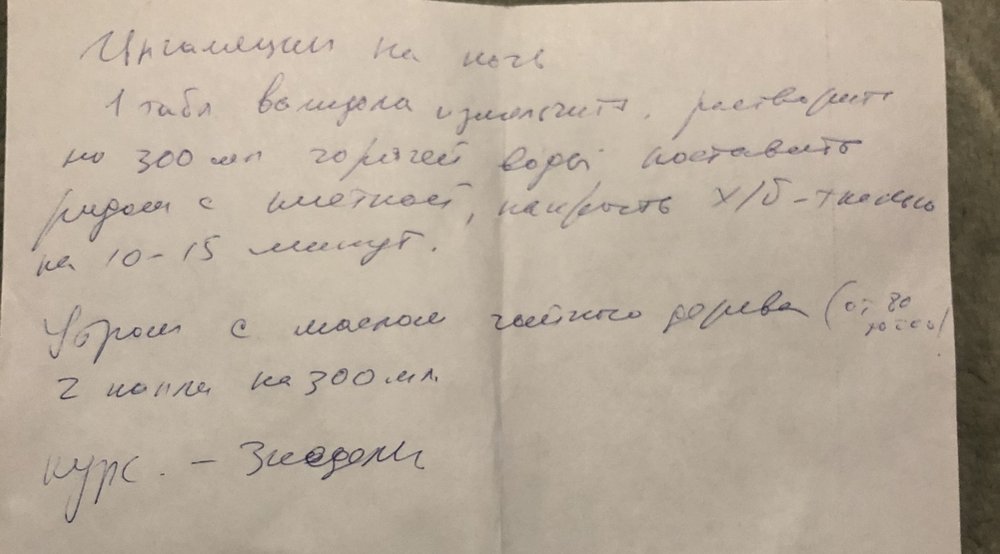 Ингаляции на ночь
1 табл валидола измельчить, растворить
на 300 мл горячей воды поставить
рядом с клеткой, накрыть х/б-тканью
на 10-15 минут.
Утром с маслом чайного дерева (от
2 капли на 300 мл.
курс. - 3 недели